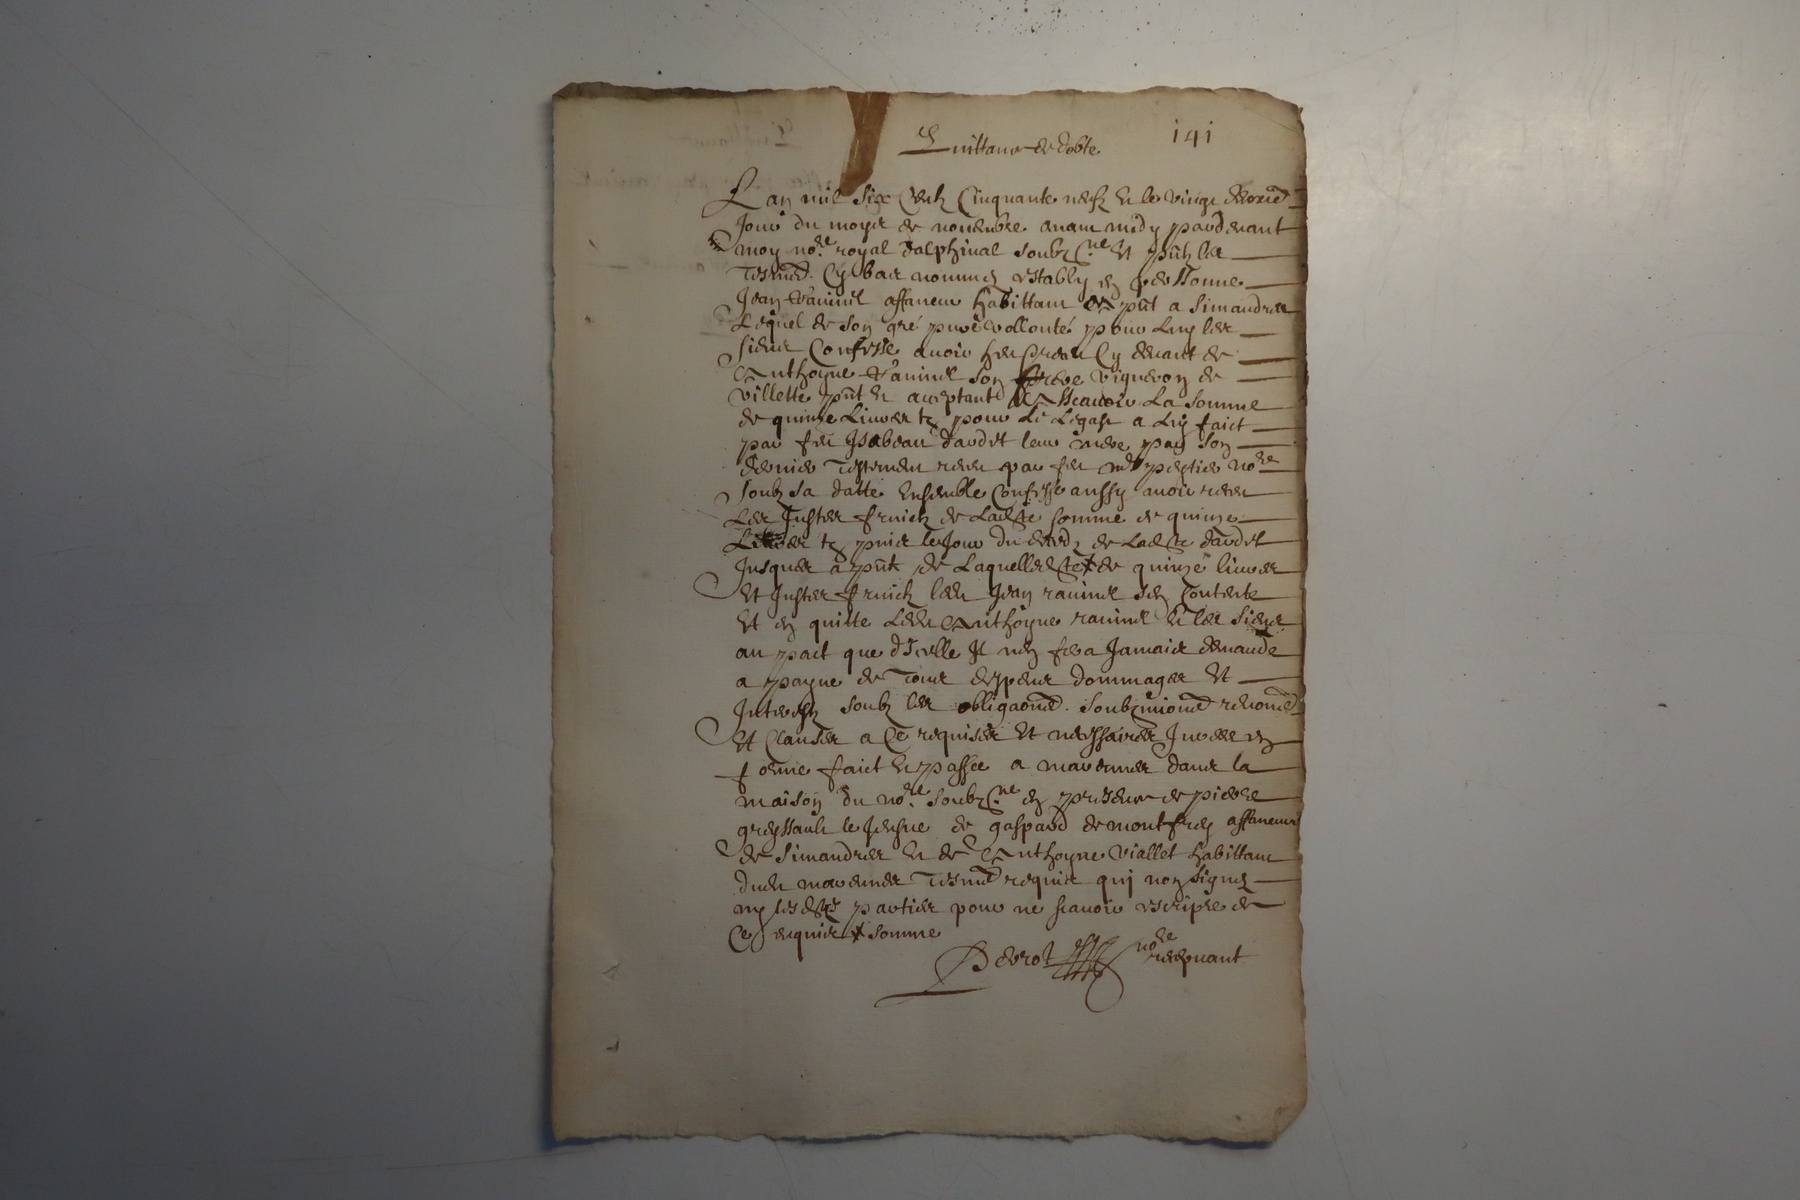 Quittance de debte 141
L'an mil six centz cinquante neufz et le vingt deuxie
Jour du moys de novembre avant midy pardevant
moy no.re royal dalphinal soubz.ne et pntz les
tesmd. cy bas nommez estably en personne
Jean ravinel affaneur habittant pnt a Simandres
Lequel de son gré pure vollonté pour luy les
siens confesse avoir heu receu cy devant de
Anthoyne ravinel son frere vigneron de
villette pnt et acceptant Scavoir La somme
de quinze Livres tz pour Le Legast a Luy faict
par feu Isabeau daudet leur mere par son
dernier Testement receu par feu me no.re
soubz sa datte Ensemble confesse aussy avoir receu
Les Justes fruictz de Ladte somme de quinze
Livres tz puis le Jour du de Ladte daudet
Jusques a pnt de Laquelle dte de quinze livres
Et Justes fruictz led Jean ravinel sen contente
Et en quitte Led Anthoyne ravinel et les siens
au pact que d'Icelle Il nen fera Jamais demande
a payne de tous despens dommages Et
Interestz soubz les obligaoned. soubzmioned renoned
Et Clauses a Ce requises Et necessaires Juree en
forme faict et passee a marennes dans la
maison du no.re soubz.ne en presence de pierre
greyssault le Jeusne de gaspard de montfrey affaneurs
de Simandres et de Anthoyne Viallet habittant
dud marennes Tesmd requis qui non signez
ny lesdtes parties pour ne scavoir escripre de
Ce enquis somme
no.re recepvant